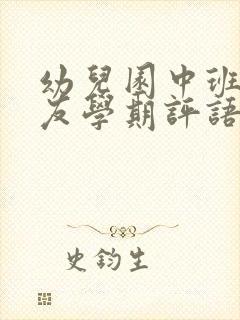 幼兒園中班
友學期評語
史鈞生